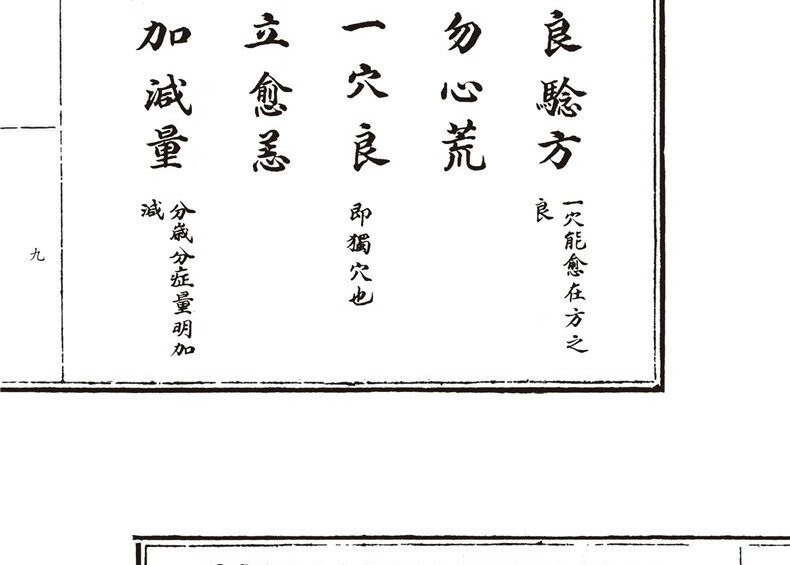 良騐方
一穴能愈在方之
良
勿心荒
一穴良
即獨穴也
立愈恙
加減量
分歲分症量明加
減
九